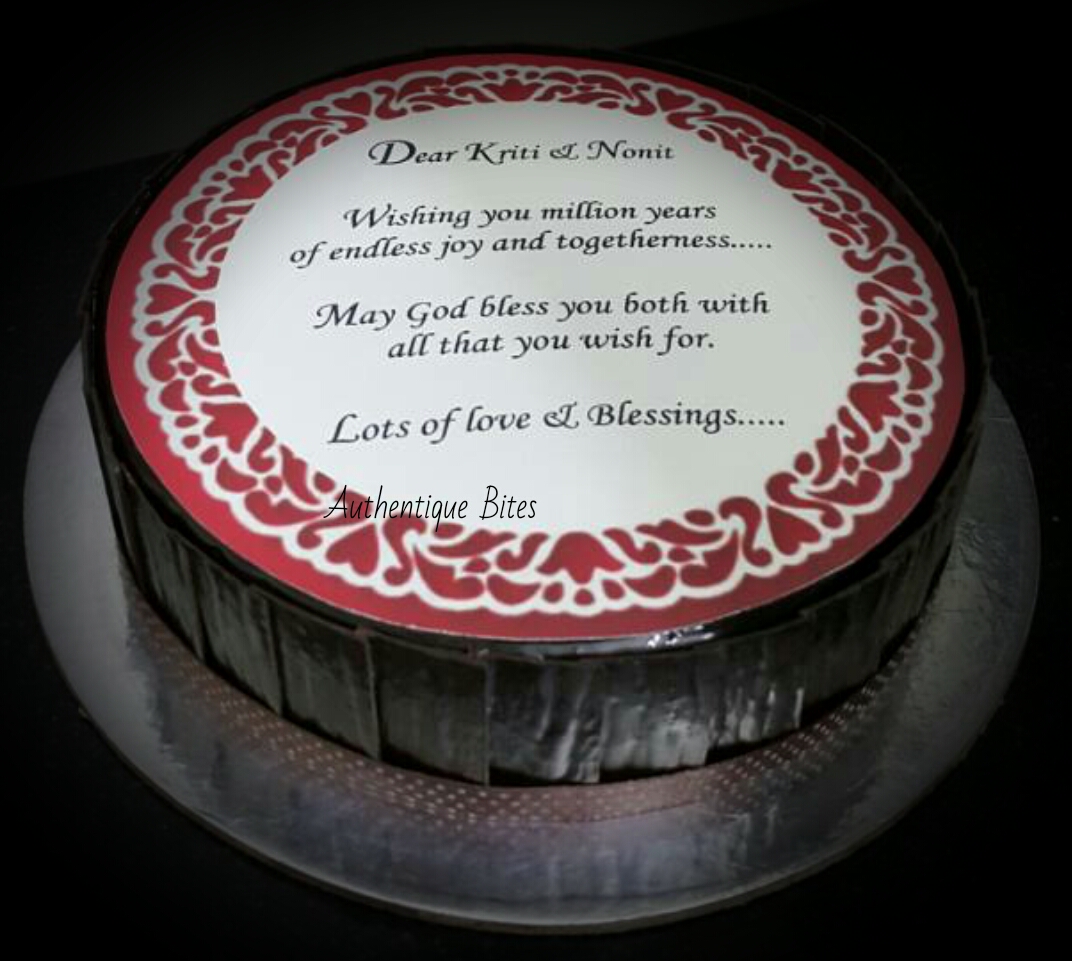 Dear Kriti & Nonit
Wishing you million years
of endless joy and togetherness.....
May God bless you both with
all that you wish for.
Lots of love & Blessings.....
Authentique Bites